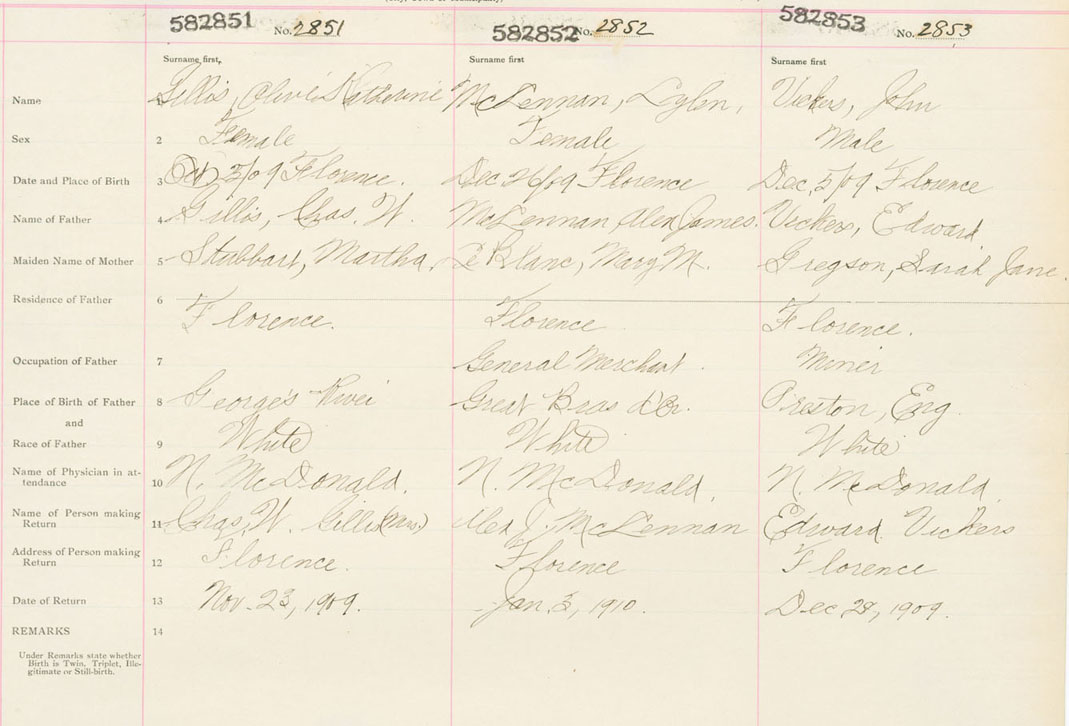 582851 No. 2851 582852 No. 2852 582853 No. 2853
Surname first, Surname first Surname first
Name 1 Gillis, Olive Katherine McLennan, Vickers, John
Sex 2 Female Female Male
Date and Place of Birth 3 Oct 5/09 Florence. Dec 26/09 Florence Dec, 5/09 Florence
Name of Father 4 Gillis, Chas. W. McLennan Alex James. Vickers, Edward
Maiden Name of Mother 5 Stubbart, Martha, Le Blanc, Mary M. Gregson, Sarah Jane.
Residence of Father 6 Florence. Florence Florence.
Occupation of Father 7 General Merchant. Miner
Place of Birth of Father 8 George's River Great Bras d'Or. Preston, Eng.
and
Race of Father 9 White White White
Name of Physician in at-
tendance 10 N. McDonald. N. McDonald. N. McDonald.
Name of Person making
Return 11 Chas. W. Gillis (Mrs) Alex J. McLennan Edward Vickers
Address of Person making
Return 12 Florence. Florence Florence
Date of Return 13 Nov. 23, 1909. Jan. 3, 1910. Dec 28, 1909.
REMARKS 14
Under Remarks state whether
Birth is Twin, Triplet, Ille-
gitimate or Still-birth.